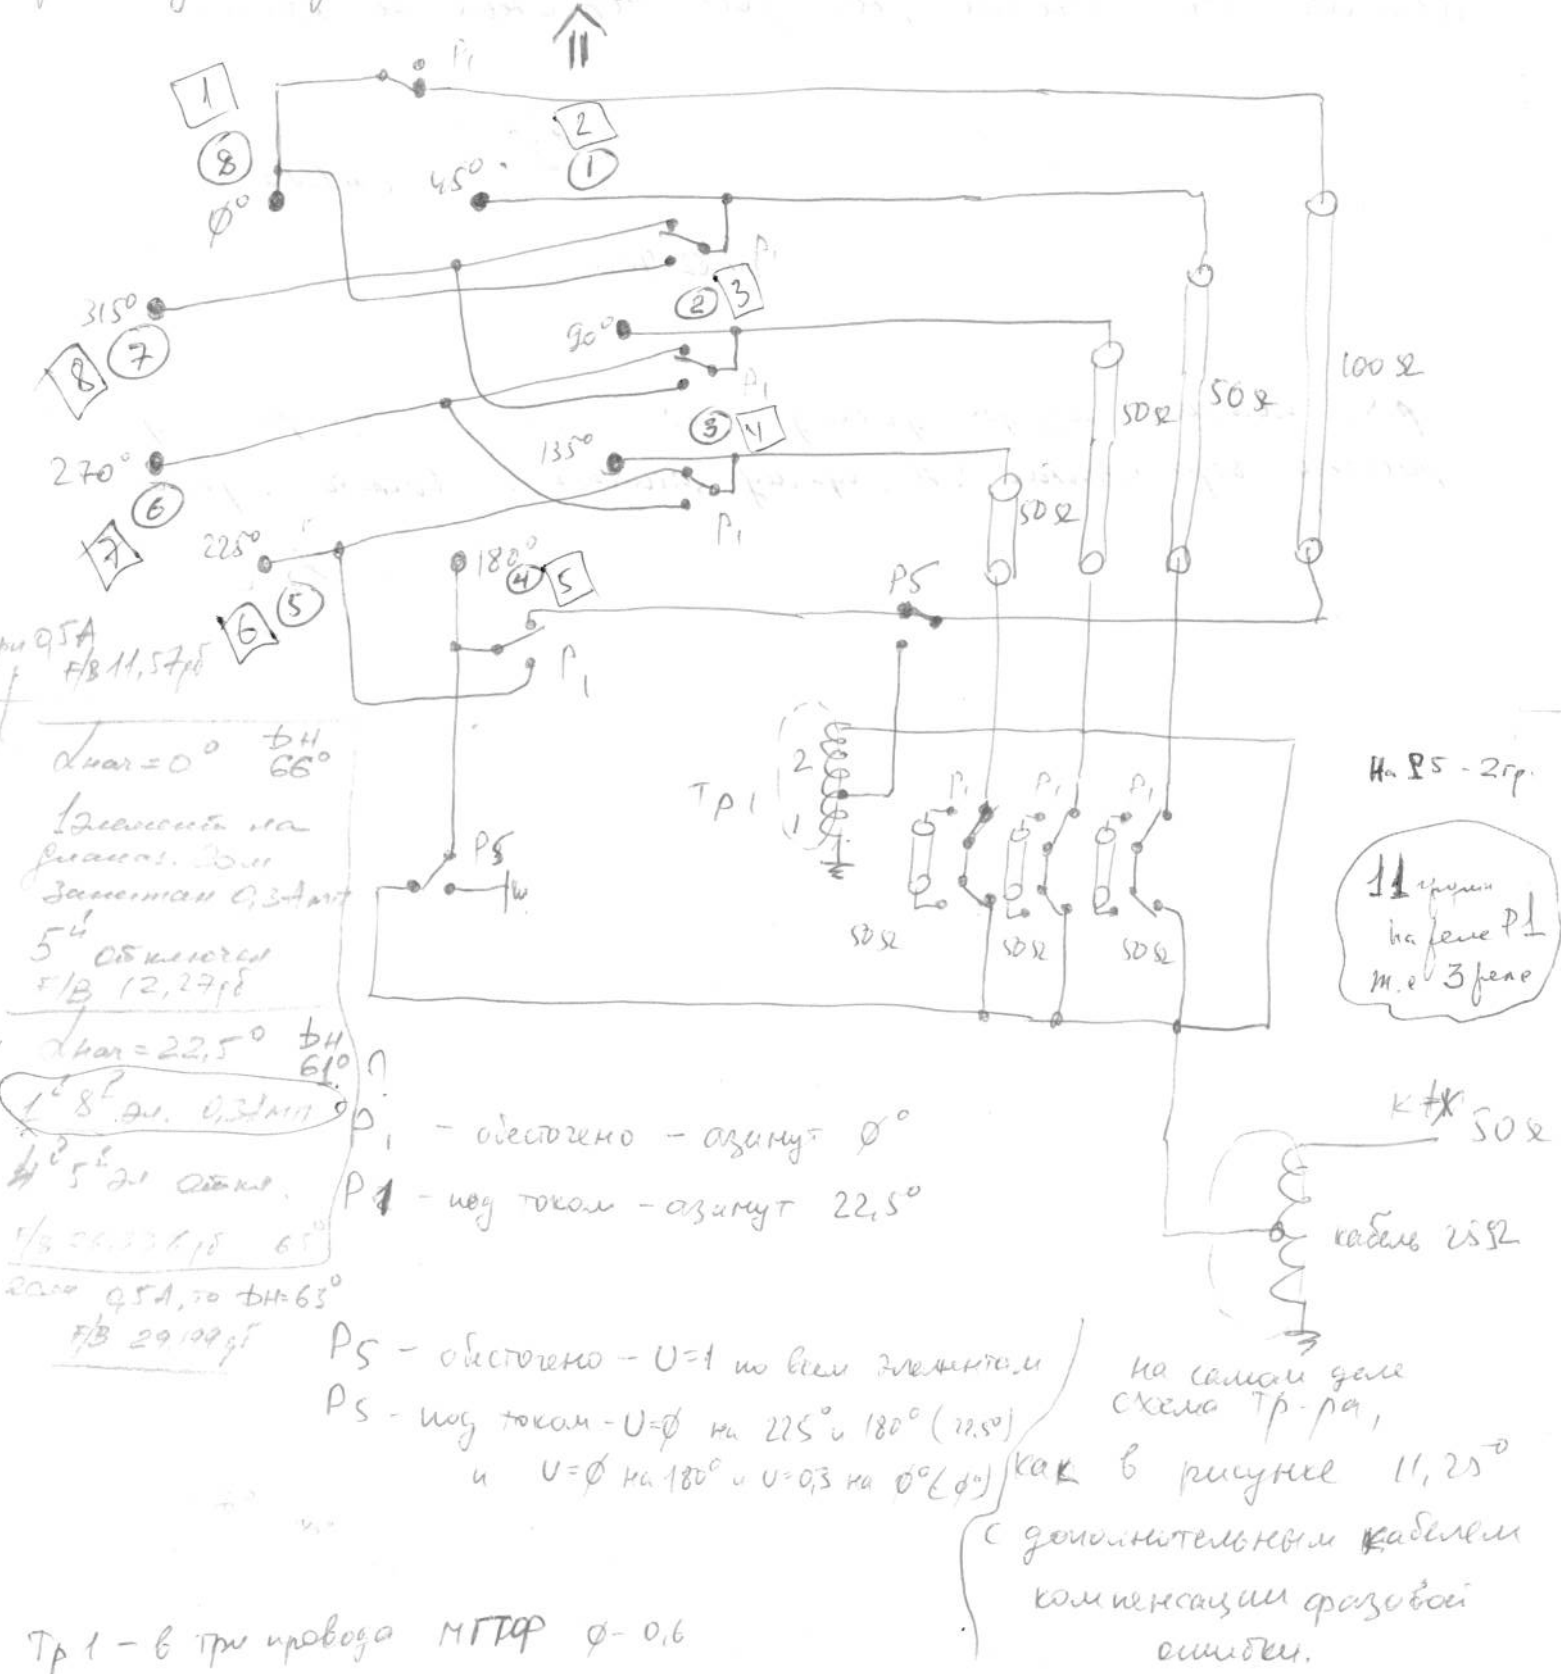 P1
1
8
φ°
2
1
45°
P1
315°
8
7
2
3
90°
P1
270°
6
7
3
4
135°
P1
225°
6
5
180°
4
5
P1
P5
50Ω
50Ω
50Ω
100Ω
0,5А
F/B 11,57дб
αнач=0° ДН
66°
1
0,3А
5й отключен
F/B 12,27дб
αнач=22,5° ДН
61°
1й 8й эл. 0,3Амп
4й 5й эл откл.
F/B
65°
если 0,5А, то ДН=63°
F/B 29,199дб
Тр1
2
1
P5
P1
P1
P1
50Ω
50Ω
50Ω
На P5 - 2гр.
11 групп
на реле P1
т.е 3 реле
P1 - обесточено - азимут φ°
P1 - под током - азимут 22,5°
50Ω
кабель 25Ω
P5 - обесточено - U=1 по всем элементам
P5 - под током - U=φ на 225° и 180° (22.5°)
и U=φ на 180° и U=0,3 на φ° (φ°)
на самом деле
схема Тр-ра,
как в рисунке 11,25°
с дополнительным кабелем
компенсации фазовой
ошибки.
Тр 1 - в три провода МГТФ φ-0,6